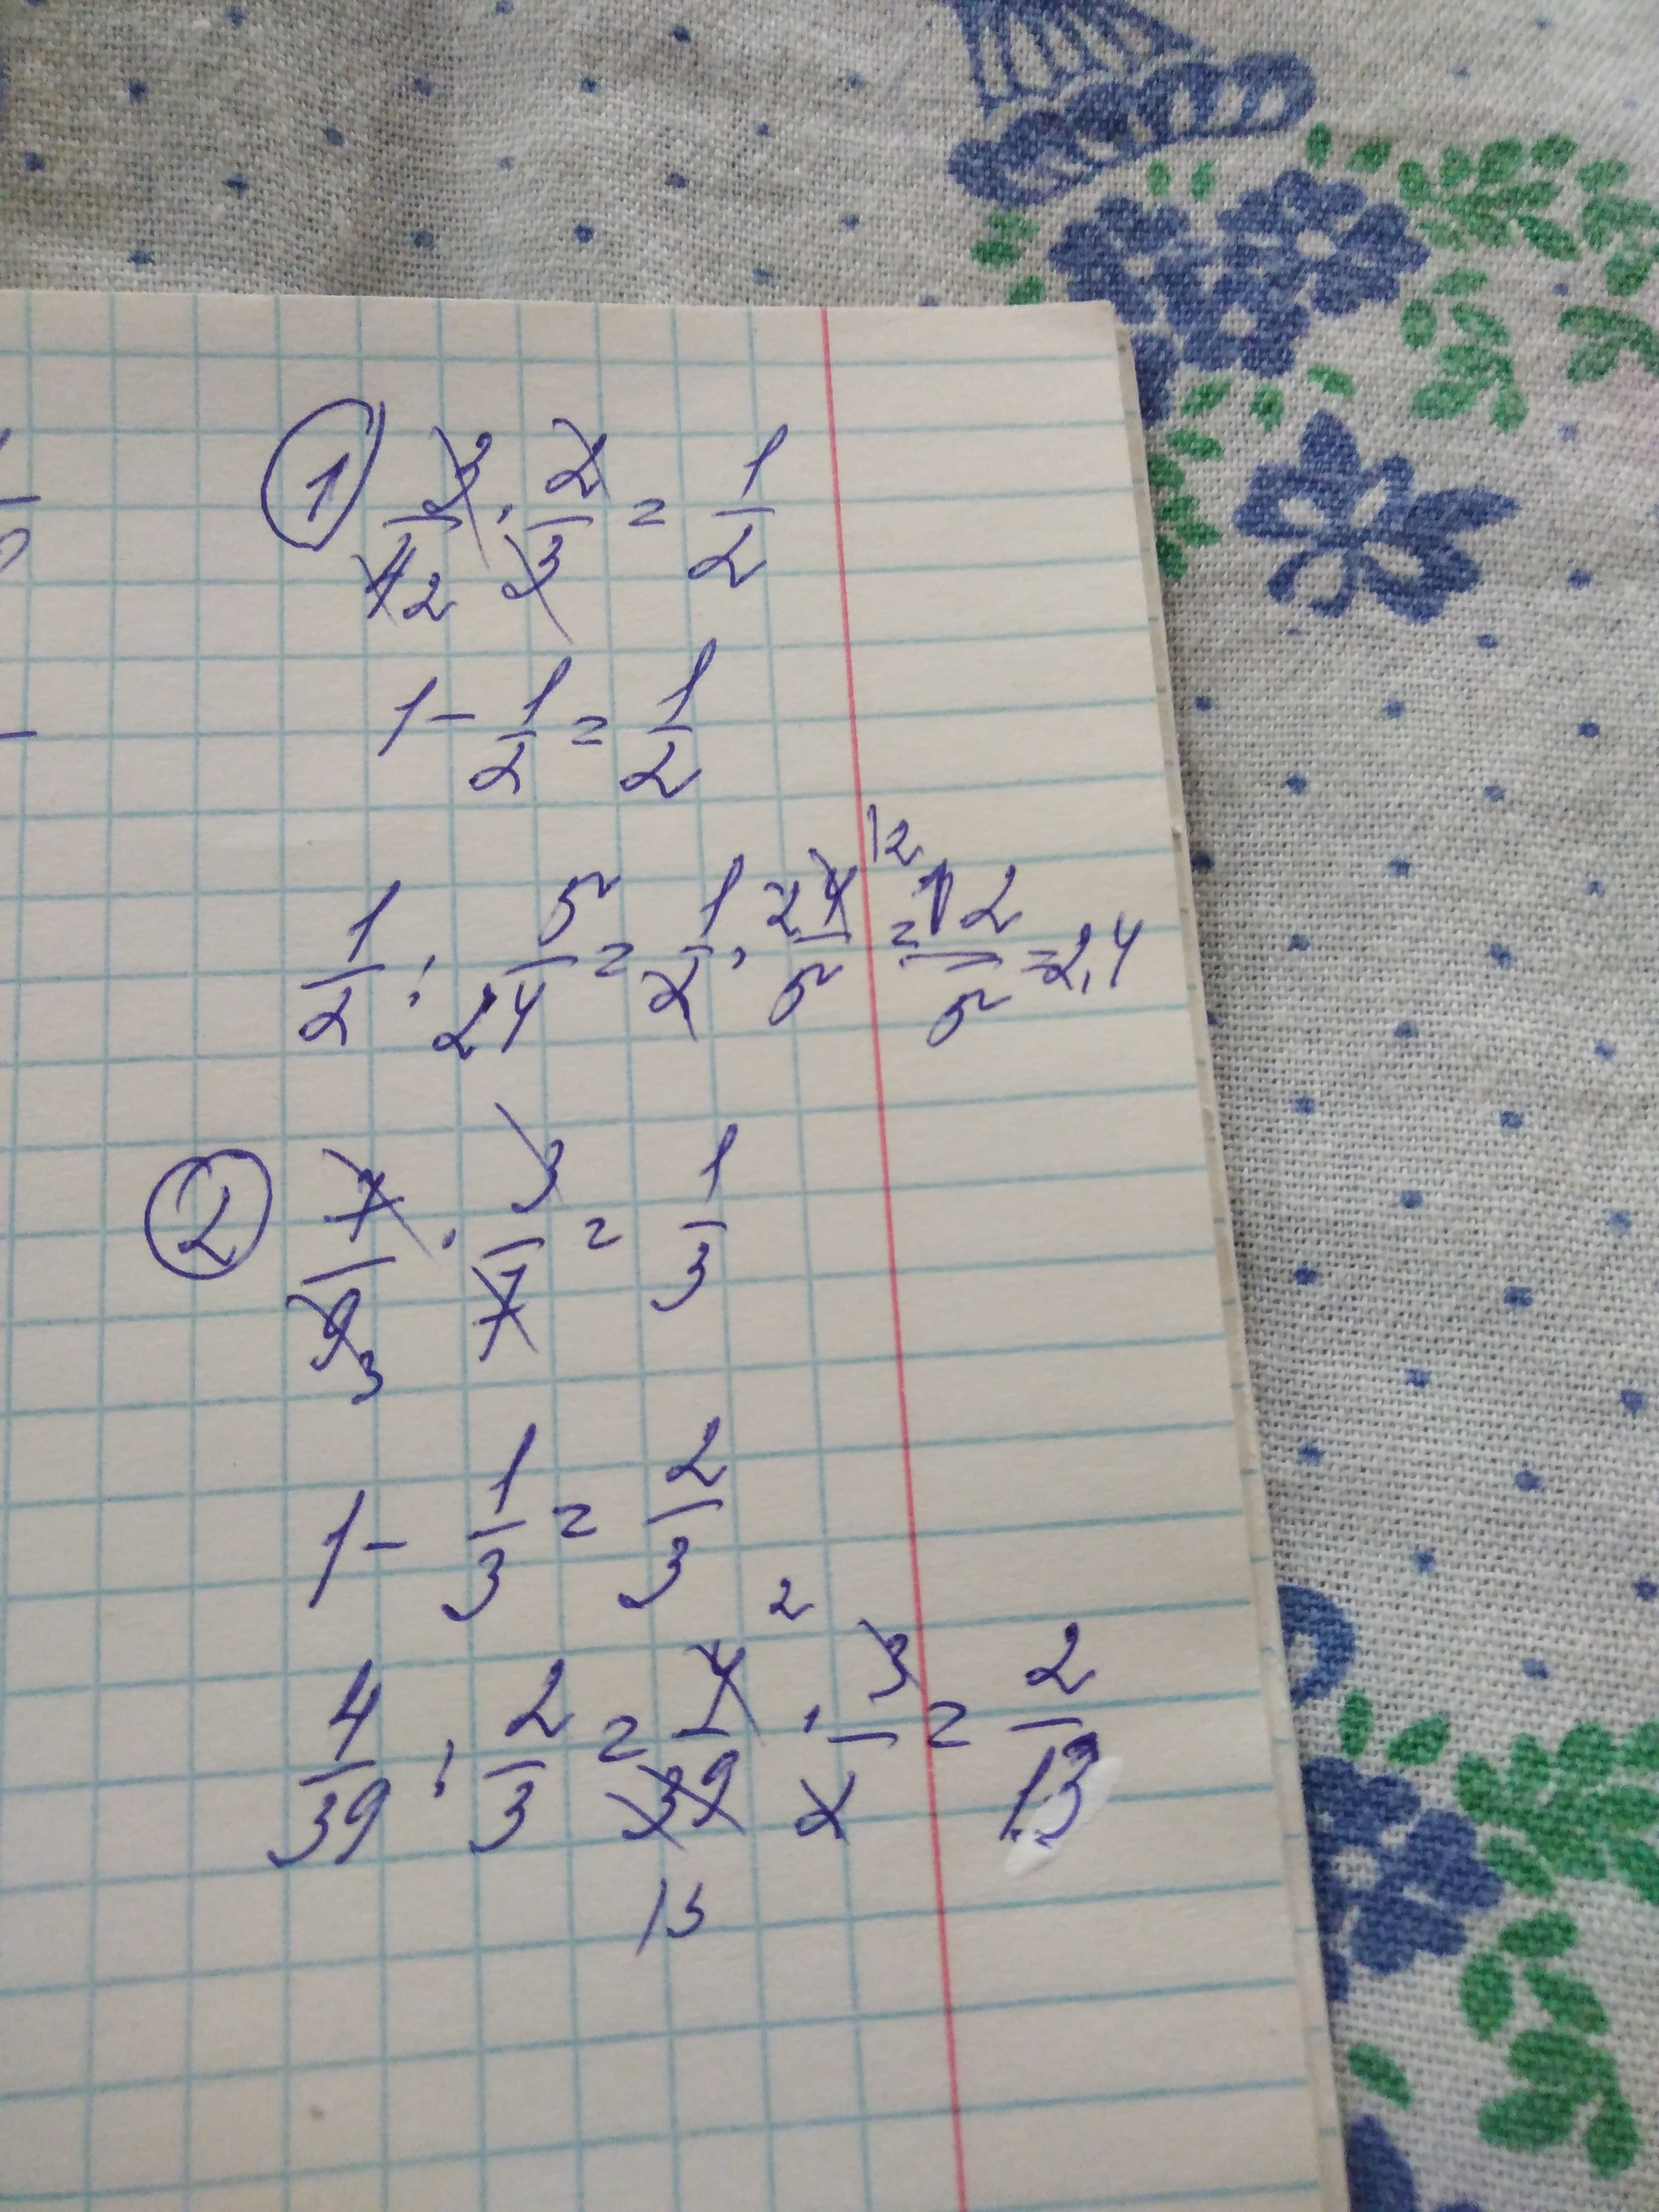 ① 3/4 2 · 2/3 = 1/2
1 - 1/2 = 1/2
1/2 : 5/24 = 1/2 · 24/5 12 = 12/5 = 2,4
② 7/9 3 · 3/7 = 1/3
1 - 1/3 = 2/3
4/39 : 2/3 = 4/39 2 13 · 3/2 = 2/13